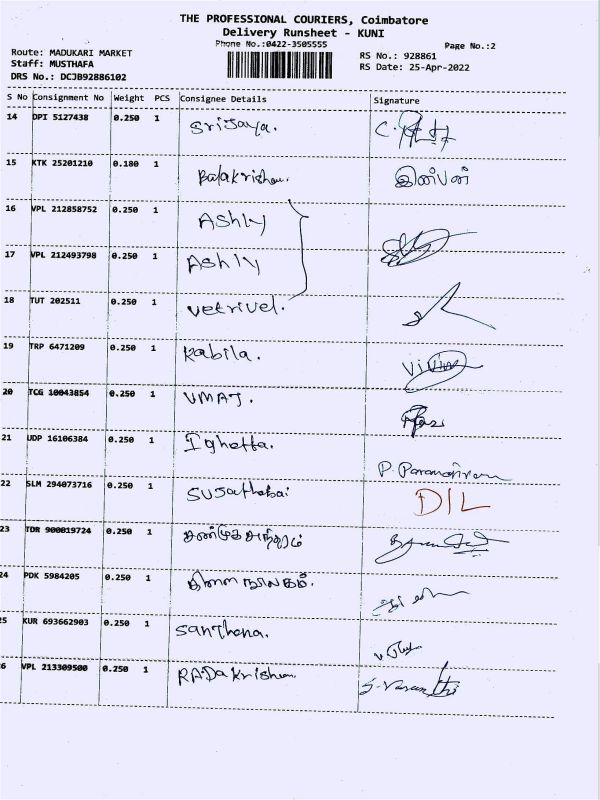 THE PROFESSIONAL COURIERS, Coimbatore
Delivery Runsheet - KUNI
Phone No.:0422-3505555
Page No.:2
Route: MADUKARI MARKET
RS No.: 928861
Staff: MUSTHAFA
RS Date: 25-Apr-2022
DRS No.: DCJB92886102
S No Consignment No Weight PCS Consignee Details Signature
14 DPI 5127438 0.250 1 Srijaya.
15 KTK 25201210 0.180 1 Balakrishnan. இன்பன்
16 VPL 212858752 0.250 1 Ashly
17 VPL 212493798 0.250 1 Ashly
18 TUT 202511 0.250 1 vetrivel.
19 TRP 6471209 0.250 1 Kabila.
20 TCG 10043854 0.250 1 UMAJ.
21 UDP 16106384 0.250 1 P. Paramasivam
22 SLM 294073716 0.250 1 SUJathabai DIL
23 TDR 900019724 0.250 1
24 PDK 5984205 0.250 1
25 KUR 693662903 0.250 1 Santhana.
26 VPL 213309500 0.250 1 RADakrishnan S. Vasanthi